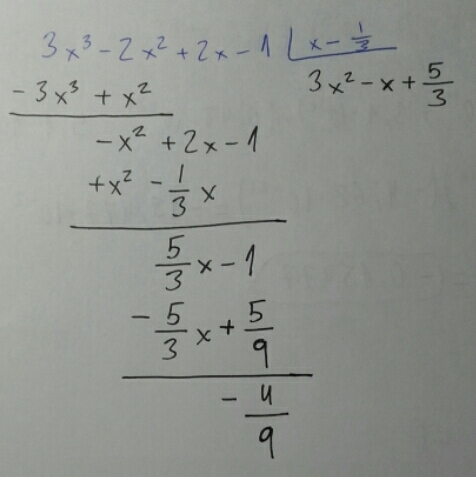 3x³ - 2x² + 2x - 1 | x - 1/3
- 3x³ + x² 3x² - x + 5/3
- x² + 2x - 1
+ x² - 1/3 x
5/3 x - 1
- 5/3 x + 5/9
- 4/9